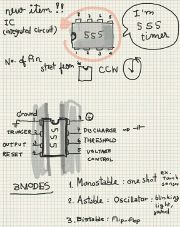 new item !!
IC
(integrated circuit)
555
I'm
555
timer
No. of Pin
start from
CCW
Ground
TRIGGER
OUTPUT
RESET
555
DISCHARGE
THRESHOLD
VOLTAGE
CONTROL
3 MODES
1. Monostable : one shot
ex.
touch
sensor
2. Astable : Oscillator : blinking
light
3. Bistable : Flip-flop